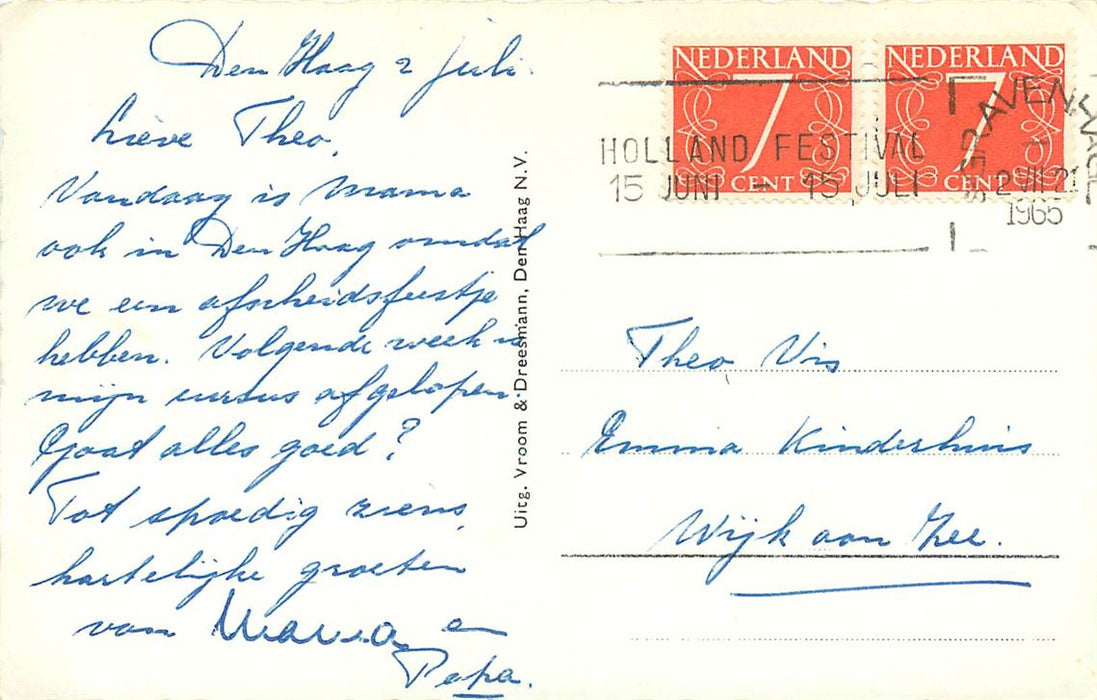 Den Haag 2 juli.
Lieve Theo,
Vandaag is mama
ook in Den Haag omdat
we een afscheidsfeestje
hebben. Volgende week is
mijn cursus afgelopen.
Gaat alles goed?
Tot spoedig ziens,
hartelijke groeten
van Mama en
Papa.
Uitg. Vroom & Dreesmann, Den Haag N.V.
NEDERLAND
7
CENT
NEDERLAND
7
CENT
HOLLAND FESTIVAL
15 JUNI - 15 JULI
'S GRAVENHAGE
2 VII 21
1965
Theo Vis
Emma Kinderhuis
Wijk aan Zee.